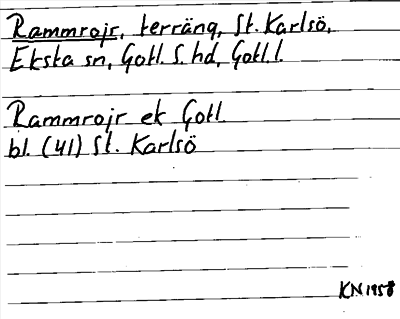 Rammrojr, terräng, St. Karlsö,
Eksta sn, Gotl. S. hd, Gotl. l.
Rammrojr ek Gotl.
bl. (41) St. Karlsö
KN 1958